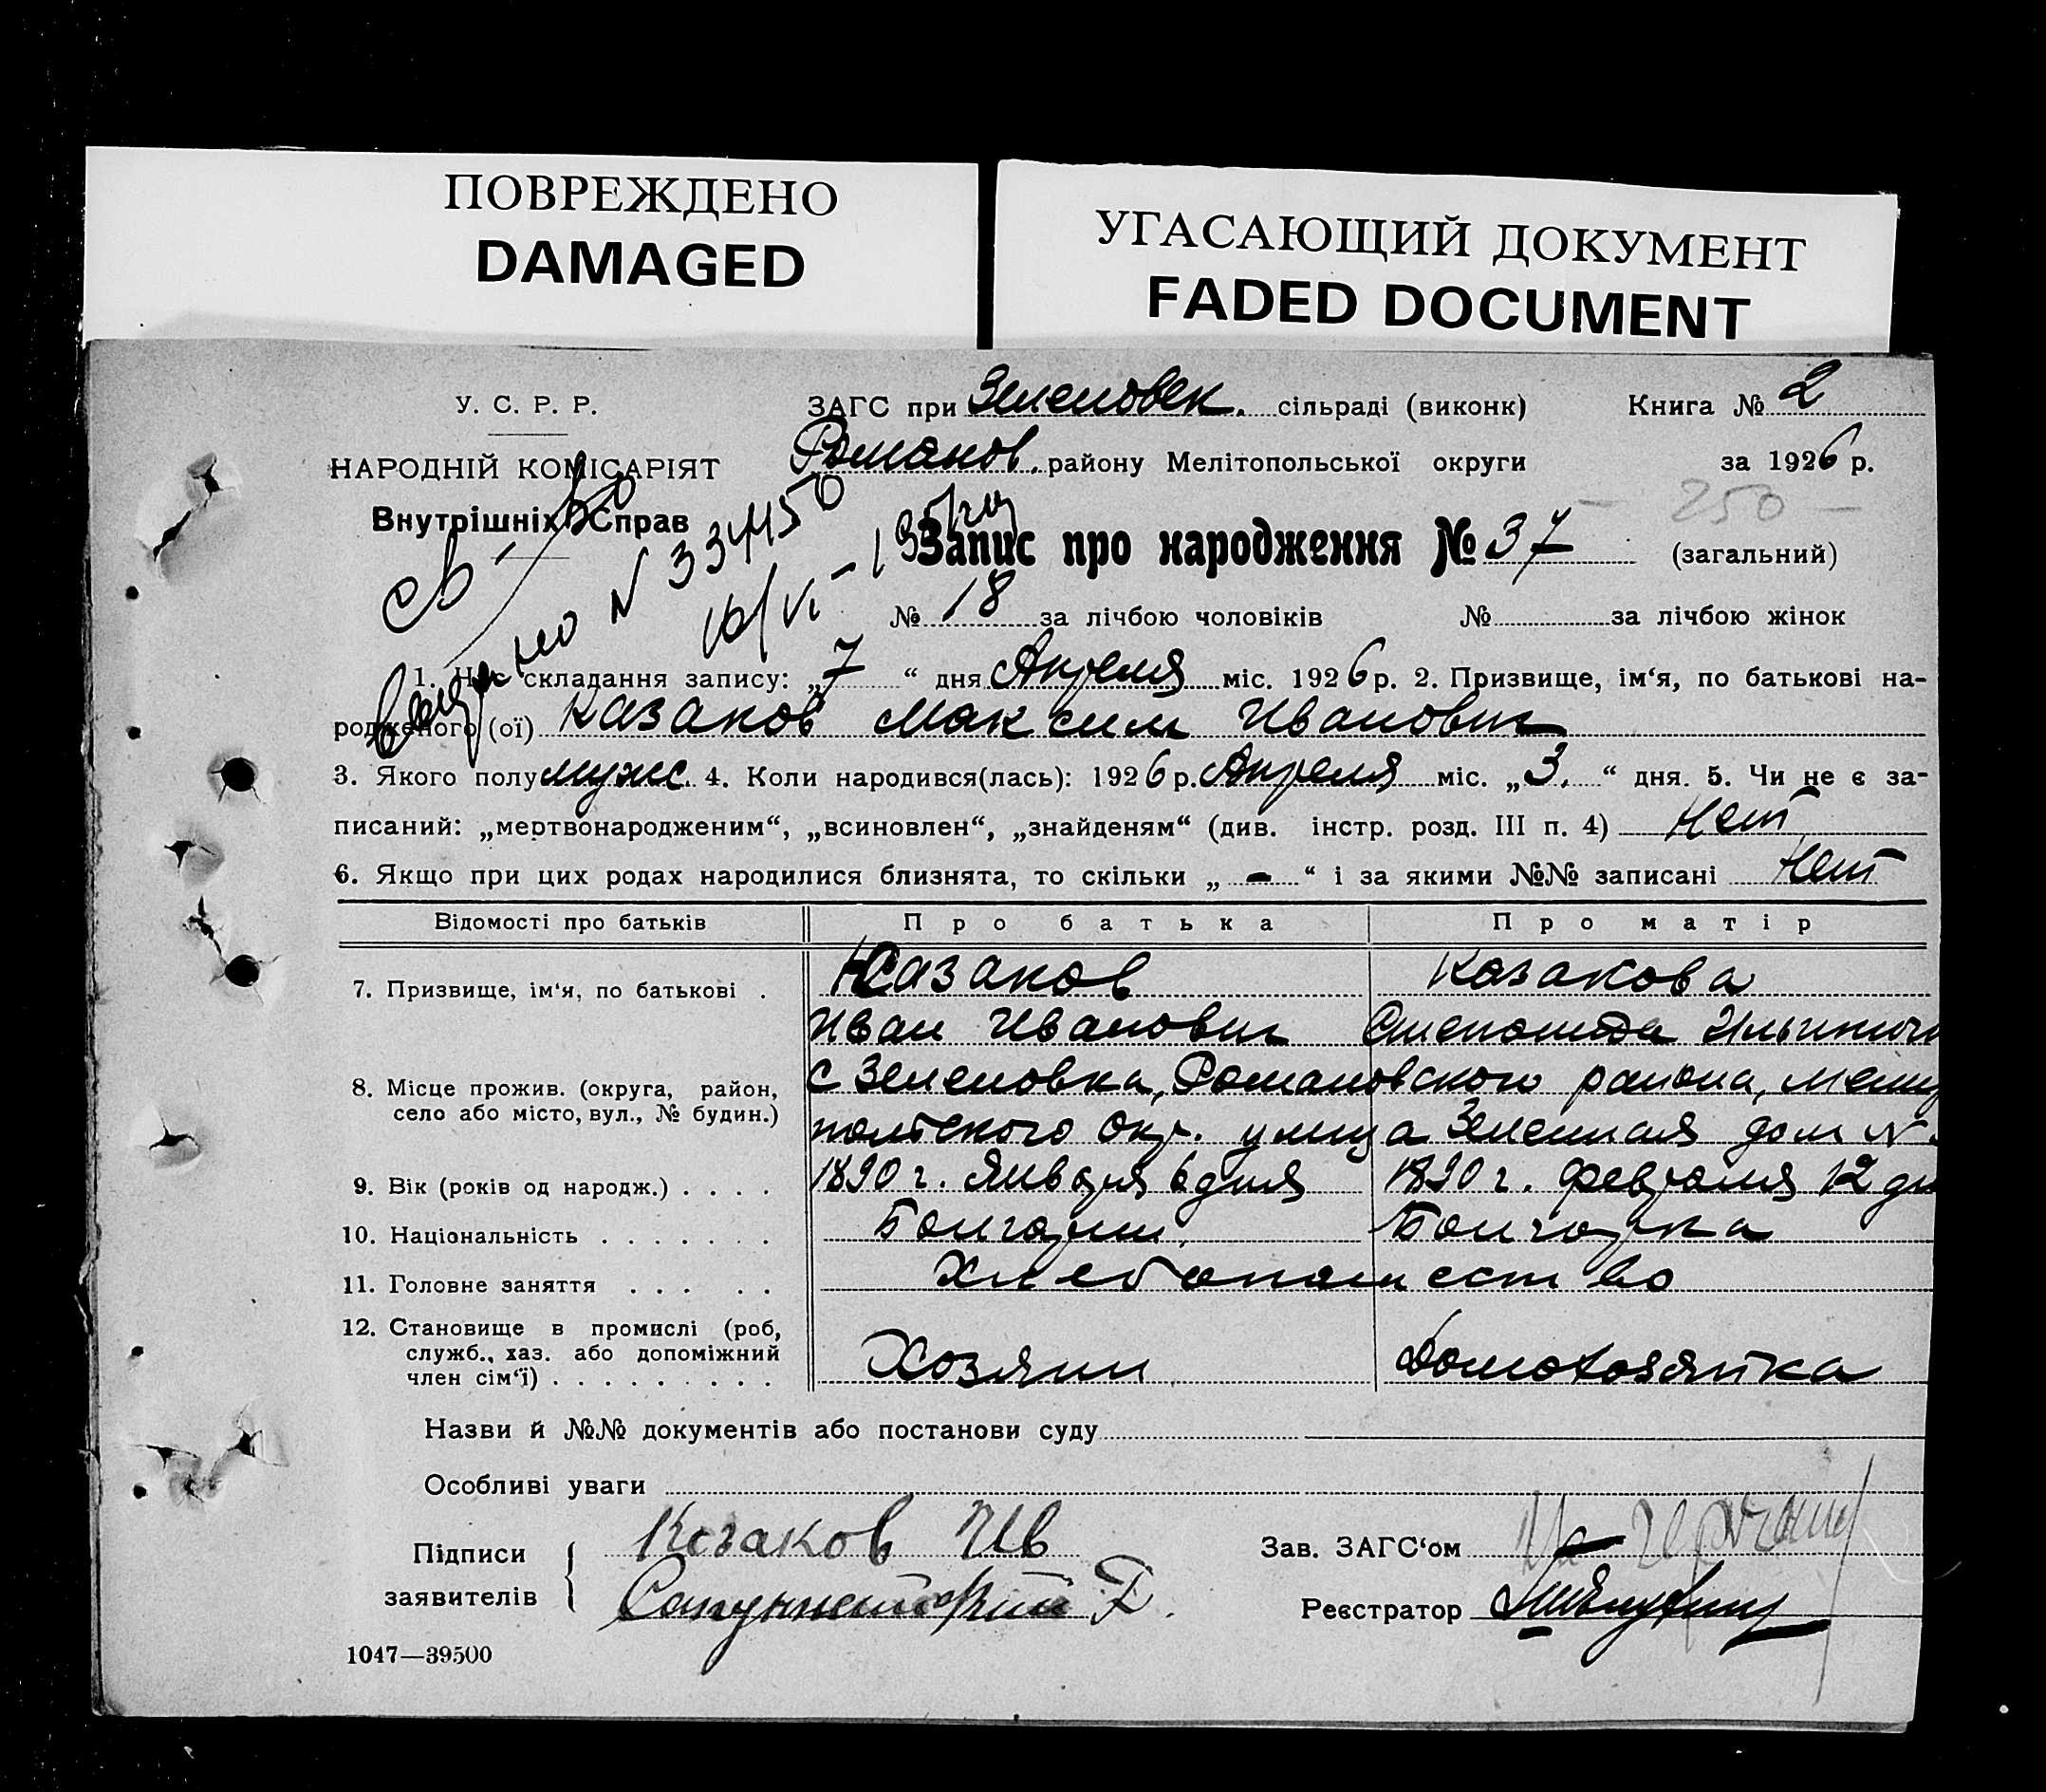 ПОВРЕЖДЕНО
DAMAGED
УГАСАЮЩИЙ ДОКУМЕНТ
FADED DOCUMENT
У. С. Р. Р.
ЗАГС при Зеленовск. сільраді (виконк)
Книга № 2
НАРОДНІЙ КОМІСАРІЯТ
Романов. району Мелітопольської округи
за 1926 р.
Внутрішніх Справ
– 250 –
Запис про народження № 37 (загальний)
св-во
выдано № 334150
10/VI – 195
№ 18 за лічбою чоловіків № за лічбою жінок
1. Час складання запису: „7“ дня Апреля міс. 1926 р. 2. Призвище, ім‘я, по батькові на-
родженого (ої) Казаков Максим Иванович
3. Якого полу мужс. 4. Коли народився(лась): 1926 р. Апреля міс. „3.“ дня. 5. Чи не є за-
писаний: „мертвонародженим“, „всиновлен“, „знайденям“ (див. інстр. розд. III п. 4) Нет
6. Якщо при цих родах народилися близнята, то скільки „ - “ і за якими №№ записані Нет
Відомості про батьків Про батька Про матір
7. Призвище, ім‘я, по батькові . Казаков Казакова
Иван Иванович Степанида
8. Місце прожив. (округа, район, с Зеленовка, Романовского района, Мелито
село або місто, вул., № будин.) польского окр. улица дом №
9. Вік (років од народж.) . . . . 1890 г. Января 6 дня 1890 г. февраля 12 дн
10. Національність . . . . . . . Болгарин. Болгарка
11. Головне заняття . . . . . Хлебопашество
12. Становище в промислі (роб,
служб., хаз. або допоміжний
член сім‘ї) . . . . . . . . . Хозяин Домохозяйка
Назви й №№ документів або постанови суду
Особливі уваги
Підписи
заявителів
Казаков Ив
Зав. ЗАГС‘ом
Реєстратор
1047—39500